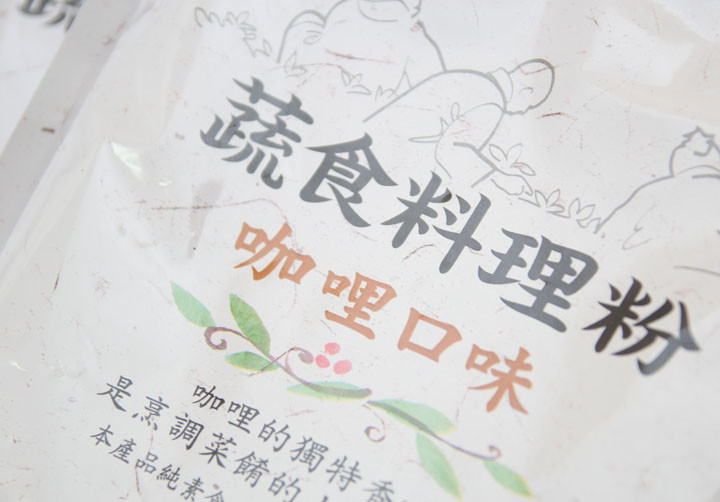 蔬食料理粉
咖哩口味
咖哩的獨特香
是烹調菜餚的
本產品純素食